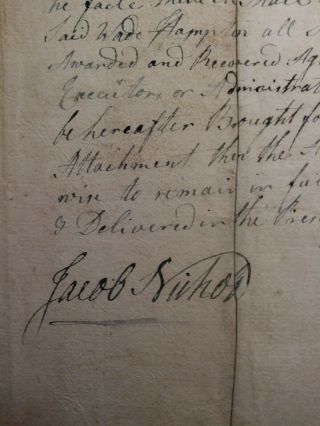 he facte there in Shall
Said Wade Hampton all
Awarded and Recovered Ag
Executors or Administrat
be hereafter Brought fo
Attachment then the
wise to remain in
& Delivered in the Pres
Jacob Nichol